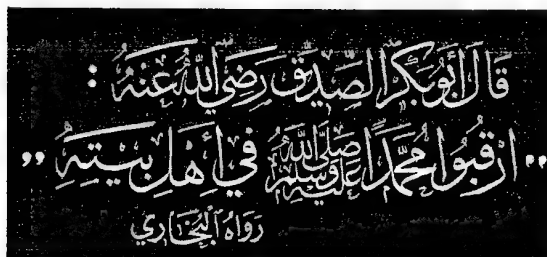 قَالَ أَبُو بَكْرٍ الصِّدِّيق رَضِيَ اللَّهُ عَنْهُ :
" ارْقُبُوا مُحَمَّدًا صَلَّى اللَّهُ عَلَيْهِ وَسَلَّمَ فِي أَهْلِ بَيْتِهِ "
رَوَاهُ الْبُخَارِي